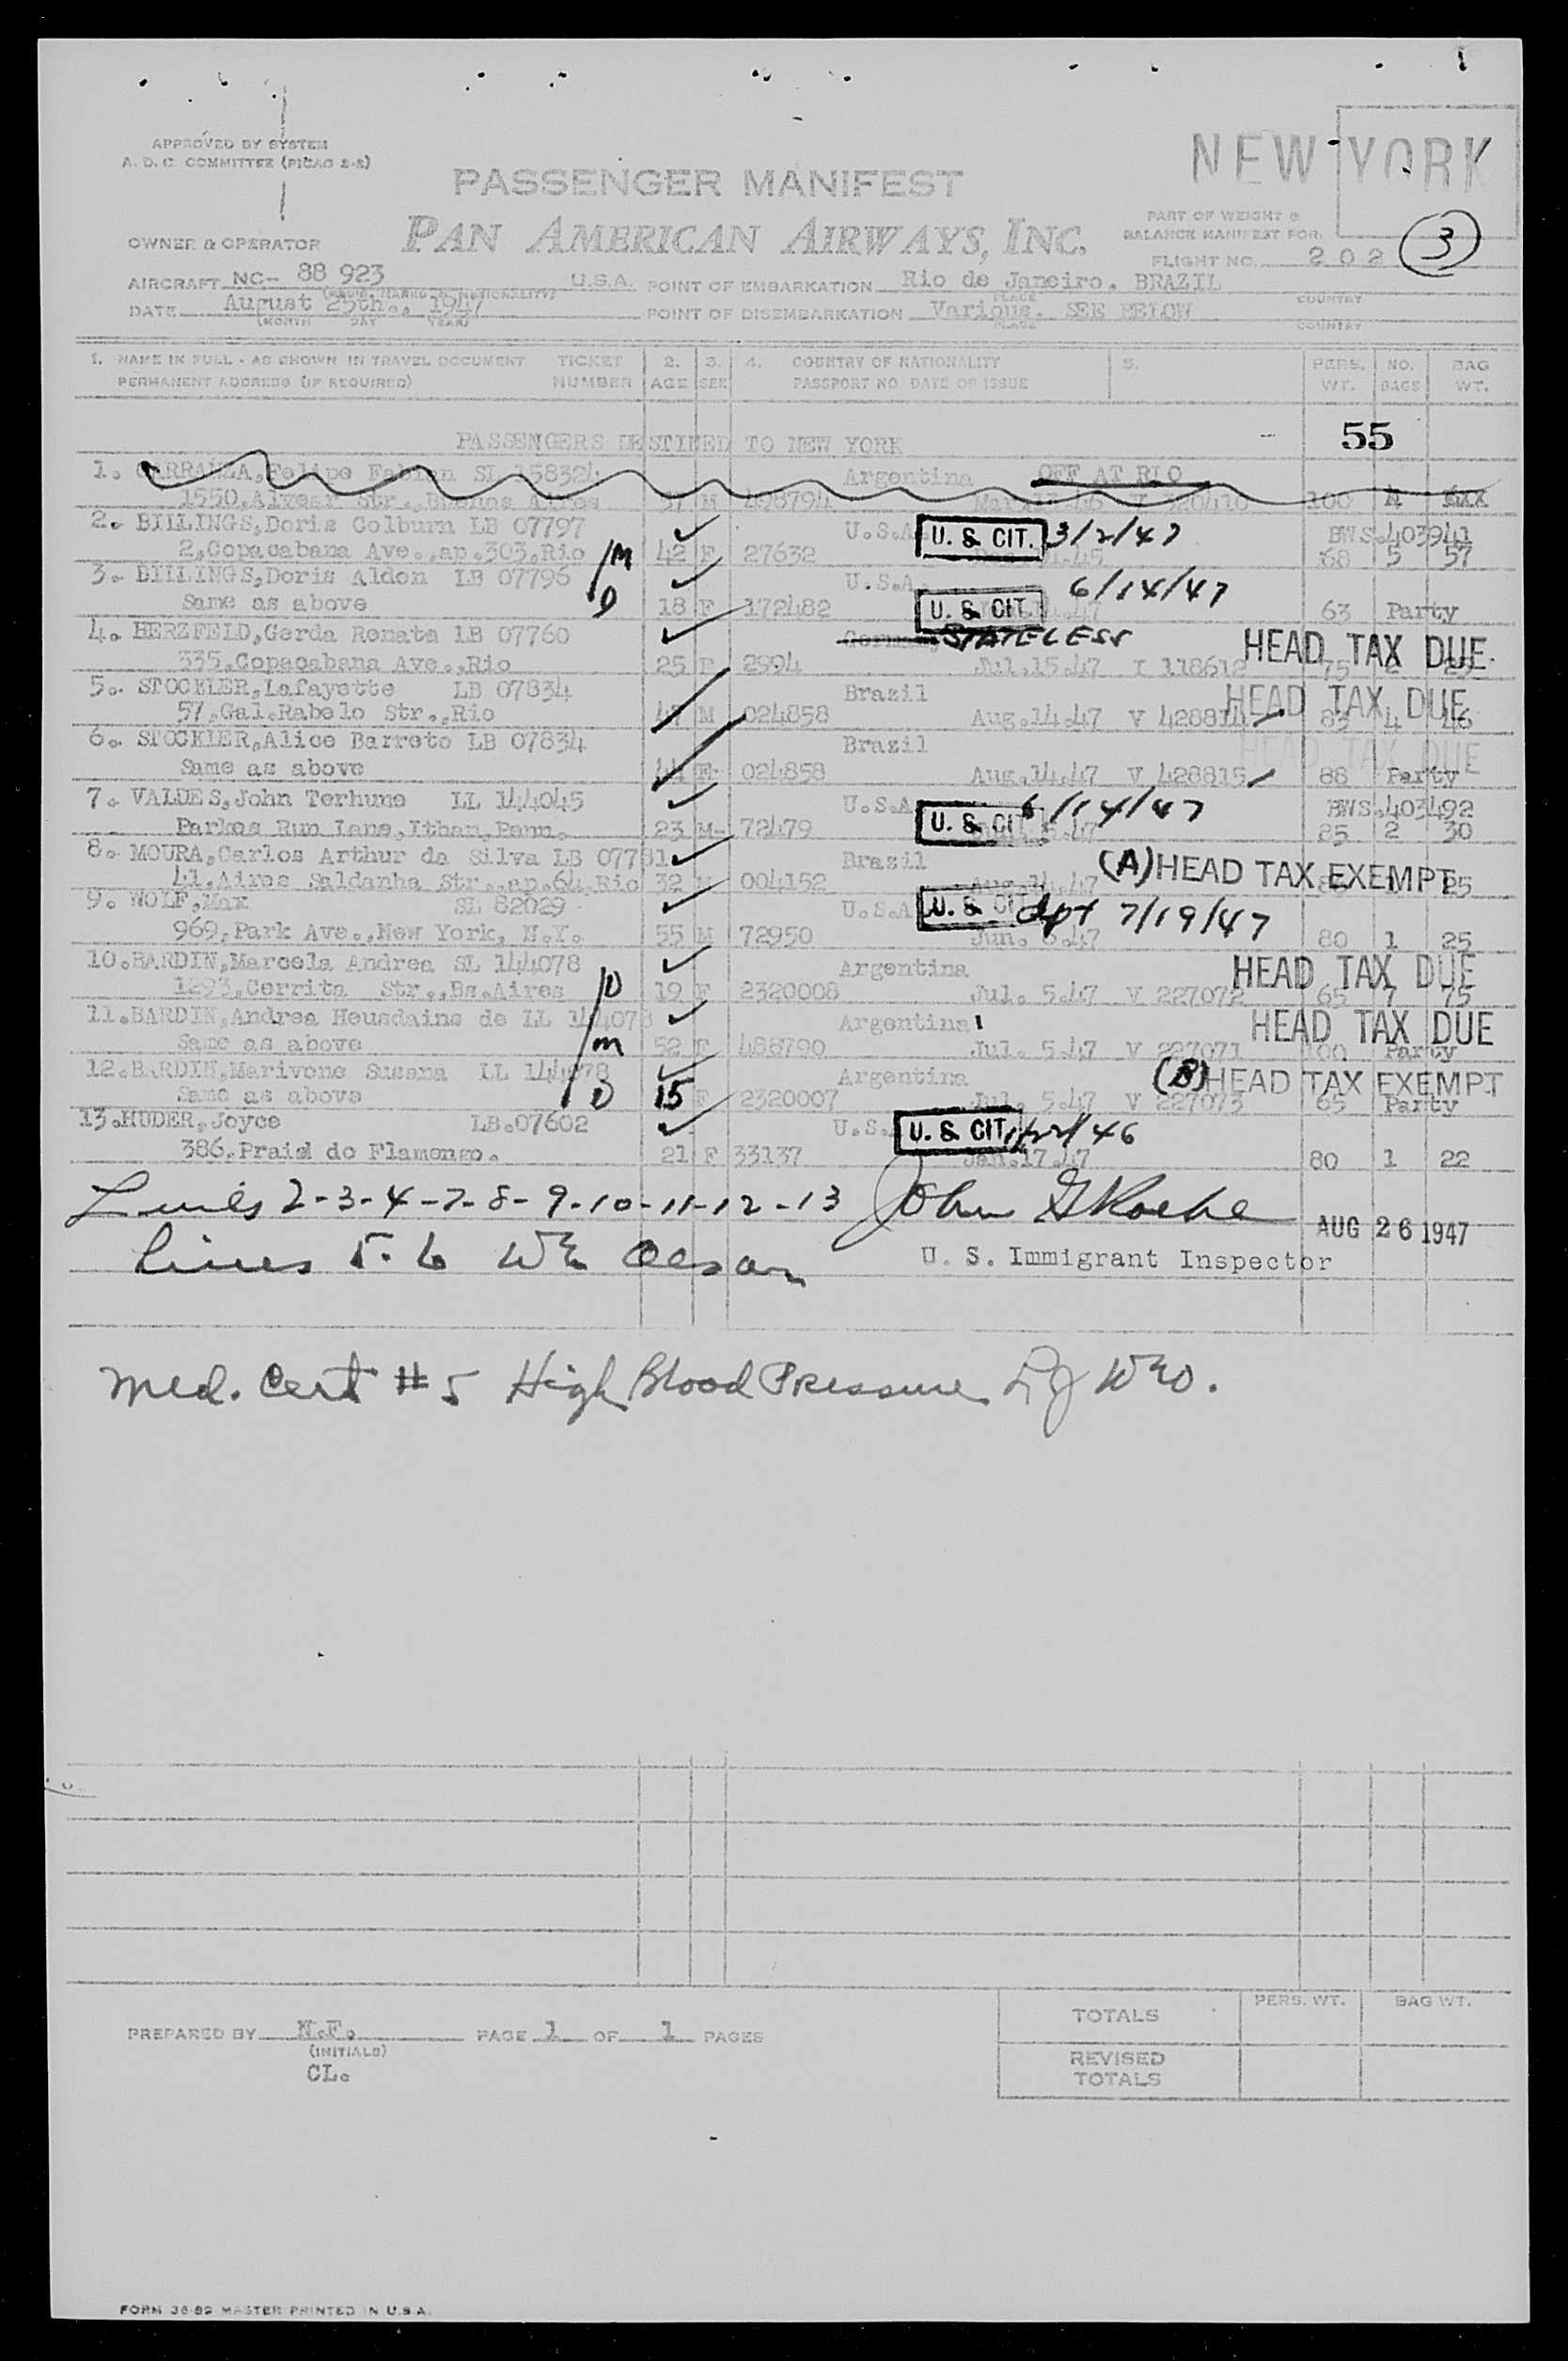 APPROVED BY SYSTEM
A. D. C. COMMITTEE (PICAO 2-2)
NEW YORK
PASSENGER MANIFEST
PAN AMERICAN AIRWAYS, INC.
PART OF WEIGHT &
BALANCE MANIFEST FOR:
FLIGHT NO. 202 3
OWNER & OPERATOR
AIRCRAFT NC-- 88 923 U.S.A. POINT OF EMBARKATION Rio de Janeiro. BRAZIL
PLACE COUNTRY
DATE August 25th., 1947 POINT OF DISEMBARKATION Various. SEE BELOW
(MONTH DAY YEAR) PLACE COUNTRY
1. NAME IN FULL - AS SHOWN IN TRAVEL DOCUMENT TICKET 2. 3. 4. COUNTRY OF NATIONALITY 5. PERS. NO. BAG
PERMANENT ADDRESS (IF REQUIRED) NUMBER AGE SEX PASSPORT NO DATE OF ISSUE WT. BAGS WT.
PASSENGERS DESTINED TO NEW YORK 55
1. CARRANZA,Felipe SL 158324 Argentina OFF AT RIO
1550,Alvear Str.,Buenos Aires 57 M 498794 100 4
2. BILLINGS,Doris Colburn LB 07797 U.S.A. U. S. CIT. 3/2/47 BWS.403941
2,Copacabana Ave.,ap.303,Rio M 42 F 27632 68 5 57
3. BILLINGS,Doris Alden LB 07796 U.S.A. 6/14/47
Same as above D 18 F 172482 U. S. CIT. 63 Party
4. HERZFELD,Gerda Renata LB 07760 Germany STATELESS HEAD TAX DUE
335,Copacabana Ave.,Rio 25 F 2994 Jul.15.47 I 118612 75 2
5. STOCKLER,Lafayette LB 07834 Brazil HEAD TAX DUE
57,Gal.Rabelo Str.,Rio 47 M 024858 Aug.14.47 V 428814 83 4 46
6. STOCKLER,Alice Barreto LB 07834 Brazil HEAD TAX DUE
Same as above 44 F 024858 Aug.14.47 V 428815 88 Party
7. VALDES,John Terhune LL 144045 U.S.A. 6/14/47 BWS.403492
Parkes Run Lane,Ithan,Penn. 23 M 72479 U. S. CIT 85 2 30
8. MOURA,Carlos Arthur da Silva LB 07781 Brazil (A) HEAD TAX EXEMPT
41,Aires Saldanha Str.,ap.64,Rio 32 M 004152 Aug.14.47 1 25
9. WOLF,Max SL 82029 U.S.A. U. S. CIT dpt 7/19/47
969,Park Ave.,New York, N.Y. 55 M 72950 Jun. 6.47 80 1 25
10.BARDIN,Marcela Andrea SL 144078 Argentina HEAD TAX DUE
1293,Cerrito Str.,Bs.Aires D 19 F 2320008 Jul. 5.47 V 227072 65 7 75
11.BARDIN,Andrea Heusdains de LL 144078 Argentina HEAD TAX DUE
Same as above M 52 F 488790 Jul. 5.47 V 227071 100 Party
12.BARDIN,Marivone Susana LL 144078 Argentina (B) HEAD TAX EXEMPT
Same as above D 15 F 2320007 Jul. 5.47 V 227073 65 Party
13.HUDER,Joyce LB.07602 U.S. U. S. CIT
386,Praia do Flamengo. 21 F 33137 Jan.17.47 80 1 22
Lines 2-3-4-7-8-9-10-11-12-13 John G Roche AUG 26 1947
Lines 5-6 U. S. Immigrant Inspector
Med. Cert #5 High Blood Pressure
PREPARED BY N.F. PAGE 1 OF 1 PAGES
(INITIALS)
CL.
TOTALS PERS. WT. BAG WT.
REVISED
TOTALS
FORM 36-89 MASTER PRINTED IN U.S.A.